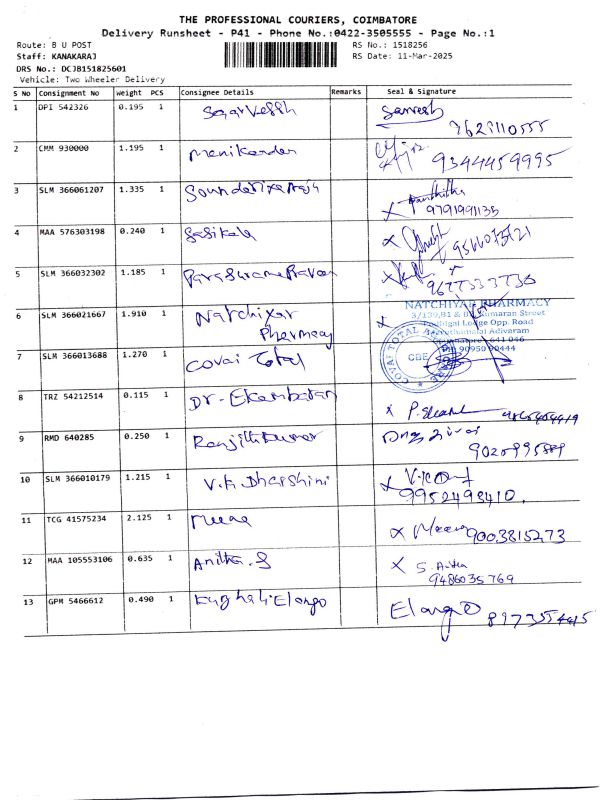 THE PROFESSIONAL COURIERS, COIMBATORE
Delivery Runsheet - P41 - Phone No.:0422-3505555 - Page No.:1
Route: B U POST RS No.: 1518256
Staff: KANAKARAJ RS Date: 11-Mar-2025
DRS No.: DCJB151825601
Vehicle: Two Wheeler Delivery
S No Consignment No Weight PCS Consignee Details Remarks Seal & Signature
1 DPI 542326 0.195 1 Sarvesh
2 CMM 930000 1.195 1 Manikandan 9344459995
3 SLM 366061207 1.335 1 9791991135
4 MAA 576303198 0.240 1 Sasikala
5 SLM 366032302 1.185 1
6 SLM 366021667 1.910 1 Natchiyar
Pharmacy
NATCHIYAR PHARMACY
3/139,B1 & B2 Kumaran Street
Lodge Opp. Road
Adivaram
Coimbatore - 641 046
7 SLM 366013688 1.270 1 Covai Total
COVAI TOTAL CARE
CBE
8 TRZ 54212514 0.115 1 Dr-Ekambaran
9 RMD 640285 0.250 1 Ranjithkumar
10 SLM 366010179 1.215 1 V.K Dharshini
9952498410.
11 TCG 41575234 2.125 1 Meena x Meena 9003815273
12 MAA 105553106 0.635 1 Anitha.S x S. Anitha
9486035769
13 GPM 5466612 0.490 1 Elango Elango